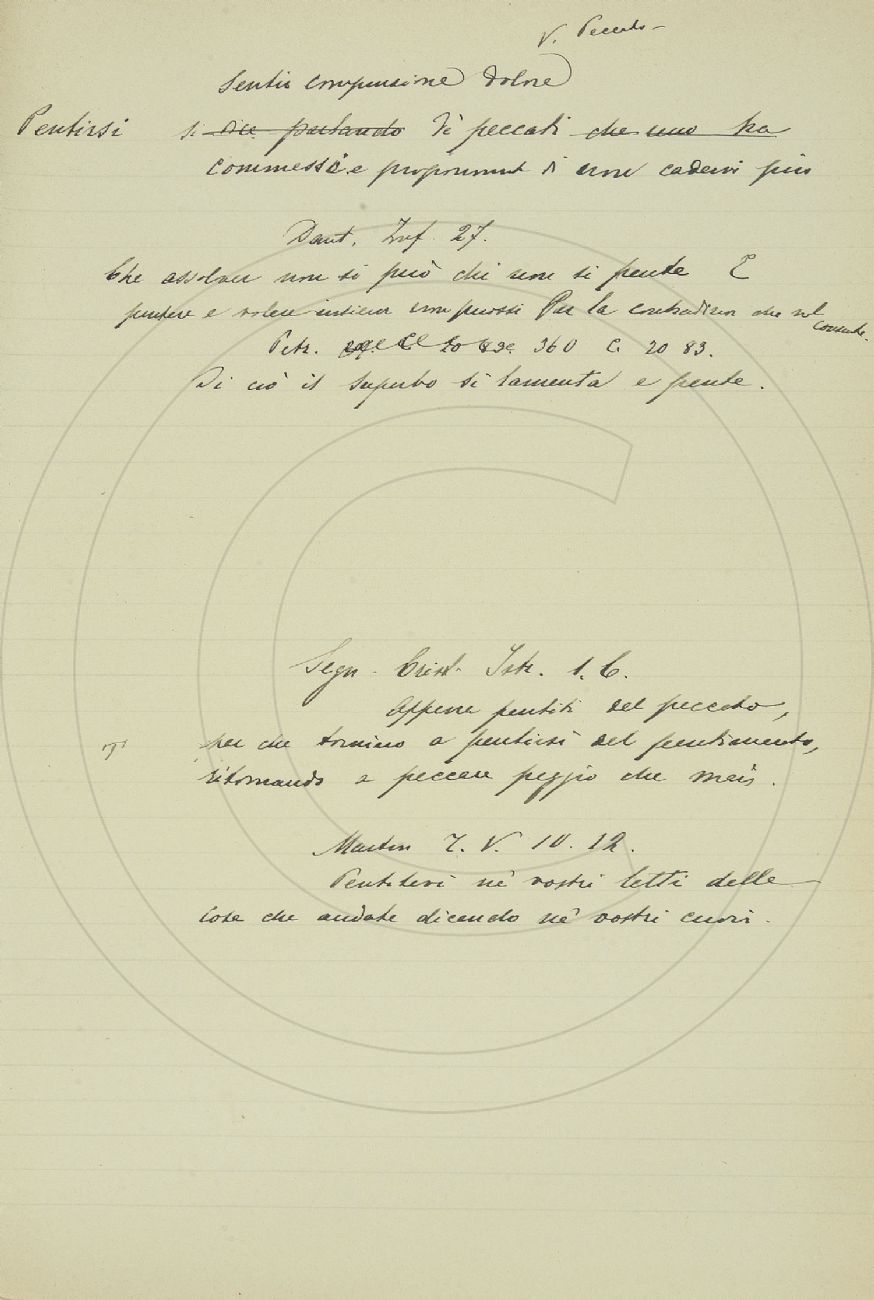 V. Peccato
Sentir compunzione dolore
Pentirsi si dice parlando di peccati che uno ha
commessi e proponimento di non cadervi più
Dant. Inf. 27.
Che assolver non si può chi non si pente E
pentere e volere insieme non puossi Per la contradizion che nol
consente.
Petr. 360 C. 20 83.
Di ciò il superbo si lamenta e pente.
Segn. Crist. Istr. 1. 6.
Appena pentiti del peccato,
per che tornino a pentirsi del pentimento,
ritornando a peccare peggio che mai.
Martin T. V. 10. 12.
Pentitevi ne' vostri letti delle
cose che andate dicendo ne' vostri cuori.